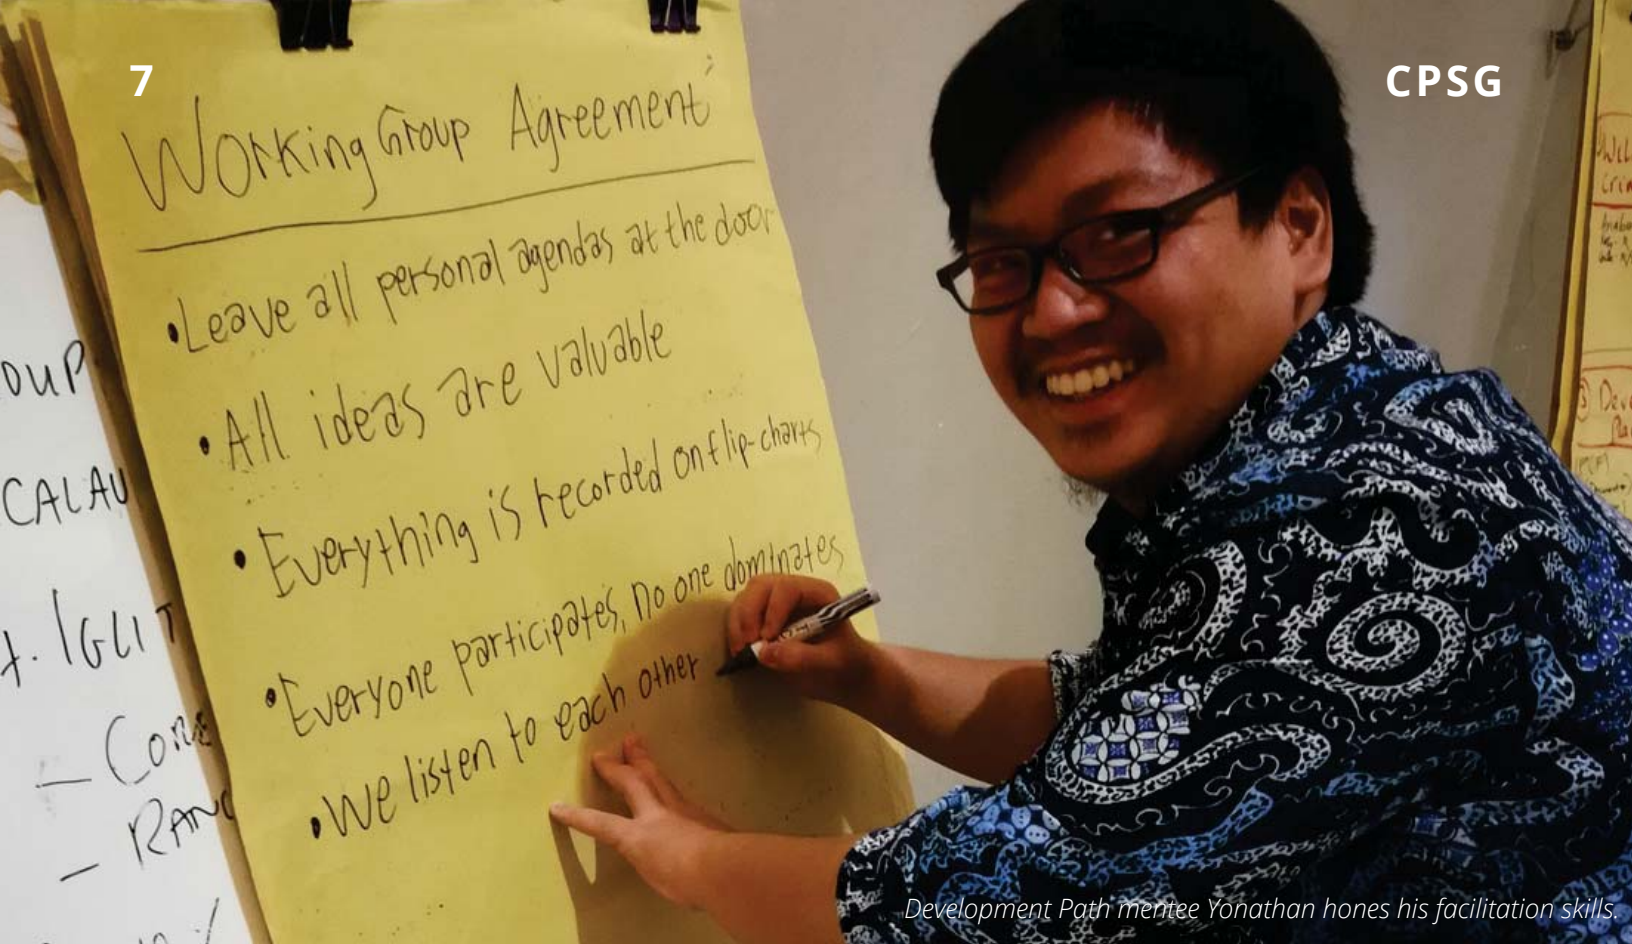 7
CPSG
Working Group Agreement
• Leave all personal agendas at the door
• All ideas are valuable
• Everything is recorded on flip-charts
• Everyone participates, no one dominates
• We listen to each other
OUP
CALAU
Development Path mentee Yonathan hones his facilitation skills.